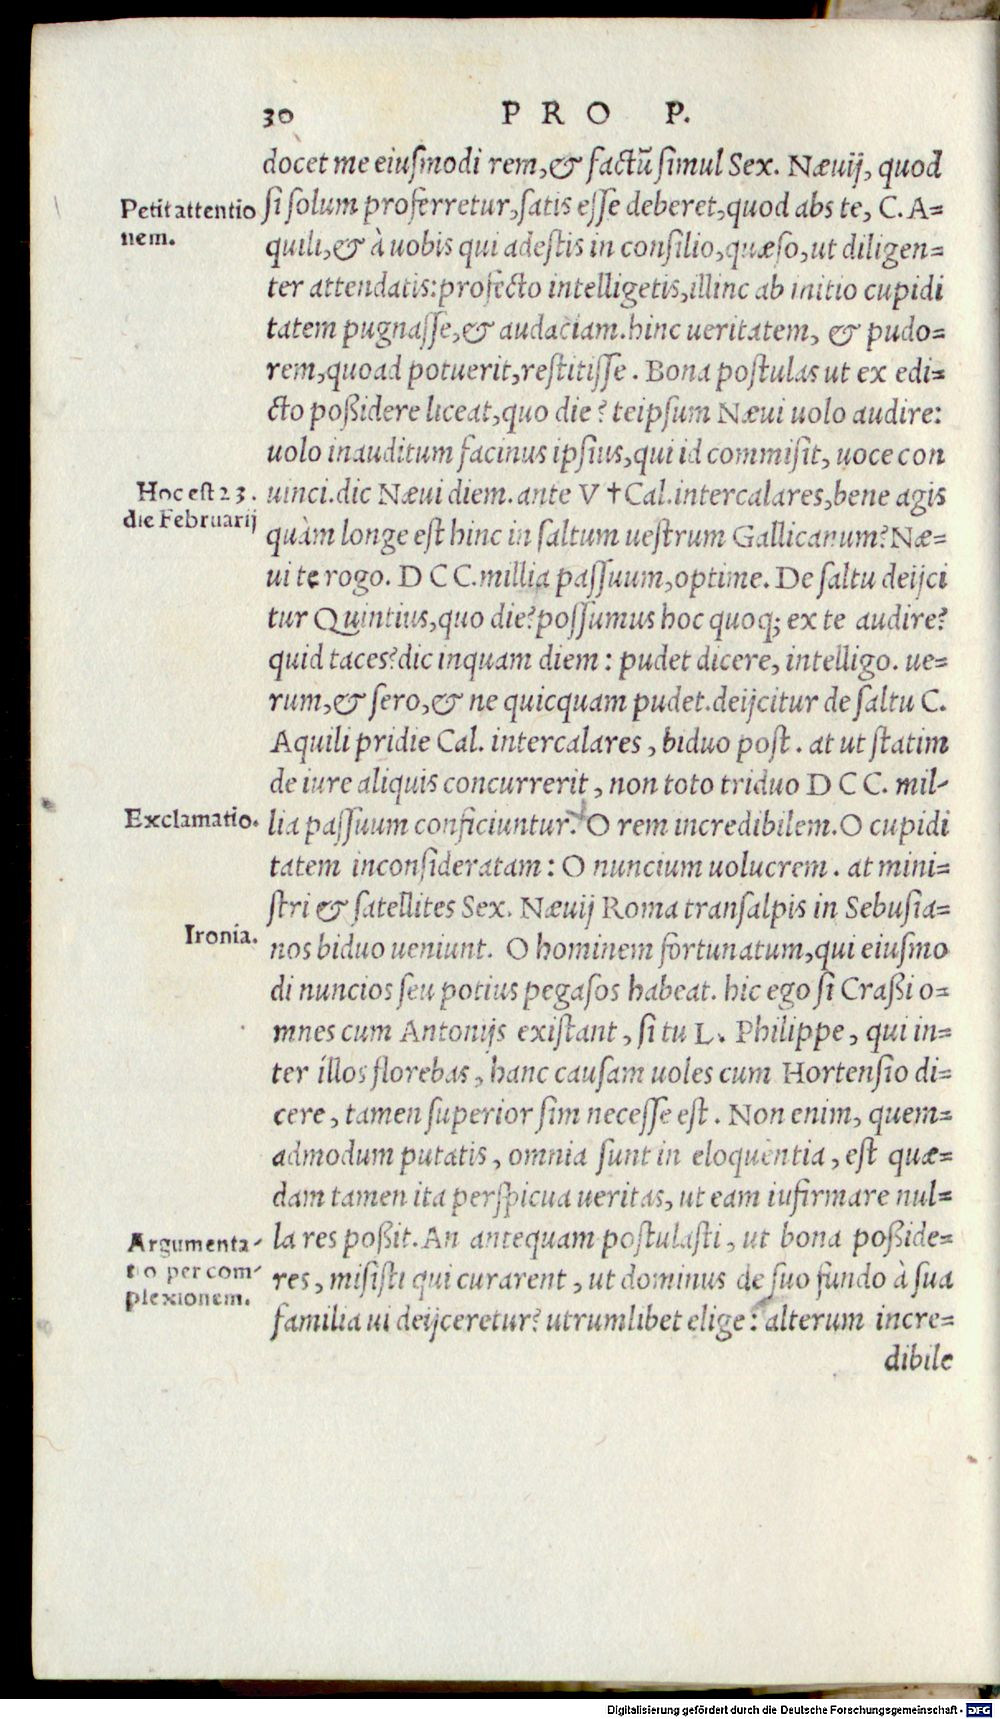 30 PRO P.
docet me eiuſmodi rem,& factũ ſimul Sex. Næuij, quod
Petit attentio
nem.
ſi ſolum proferretur,ſatis eſſe deberet,quod abs te, C. A=
quili,& à uobis qui adeſtis in conſilio,quæſo,ut diligen=
ter attendatis:profecto intelligetis,illinc ab initio cupidi
tatem pugnaſſe,& audaciam.hinc ueritatem, & pudo=
rem,quoad potuerit,reſtitiſſe. Bona poſtulas ut ex edi=
cto poßidere liceat,quo die? teipſum Næui uolo audire:
uolo inauditum facinus ipſius,qui id commiſit, uoce con
Hoc eſt 23.
die Februarij
uinci.dic Næui diem. ante V † Cal.intercalares,bene agis
quàm longe eſt hinc in ſaltum ueſtrum Gallicanum? Næ=
ui te rogo. D C C.millia paſſuum,optime. De ſaltu deijci
tur Quintius,quo die?poſſumus hoc quoq; ex te audire?
quid taces?dic inquam diem: pudet dicere, intelligo. ue=
rum,& ſero,& ne quicquam pudet.deijcitur de ſaltu C.
Aquili pridie Cal. intercalares, biduo poſt. at ut ſtatim
de iure aliquis concurrerit, non toto triduo D C C. mil-
Exclamatio.
lia paſſuum conficiuntur. O rem incredibilem.O cupidi
tatem inconſideratam: O nuncium uolucrem. at mini=
ſtri & ſatellites Sex. Næuij Roma tranſalpis in Sebuſia=
Ironia.
nos biduo ueniunt. O hominem fortunatum,qui eiuſmo
di nuncios ſeu potius pegaſos habeat. hic ego ſi Craßi o=
mnes cum Antonijs exiſtant, ſi tu L. Philippe, qui in=
ter illos florebas, hanc cauſam uoles cum Hortenſio di=
cere, tamen ſuperior ſim neceſſe eſt. Non enim, quem=
admodum putatis, omnia ſunt in eloquentia, eſt quæ=
dam tamen ita perſpicua ueritas, ut eam iufirmare nul=
Argumenta-
tio per com-
plexionem.
la res poßit. An antequam poſtulaſti, ut bona poßide=
res, miſiſti qui curarent, ut dominus de ſuo fundo à ſua
familia ui deijceretur? utrumlibet elige: alterum incre=
dibile
Digitalisierung gefördert durch die Deutsche Forschungsgemeinschaft - DFG